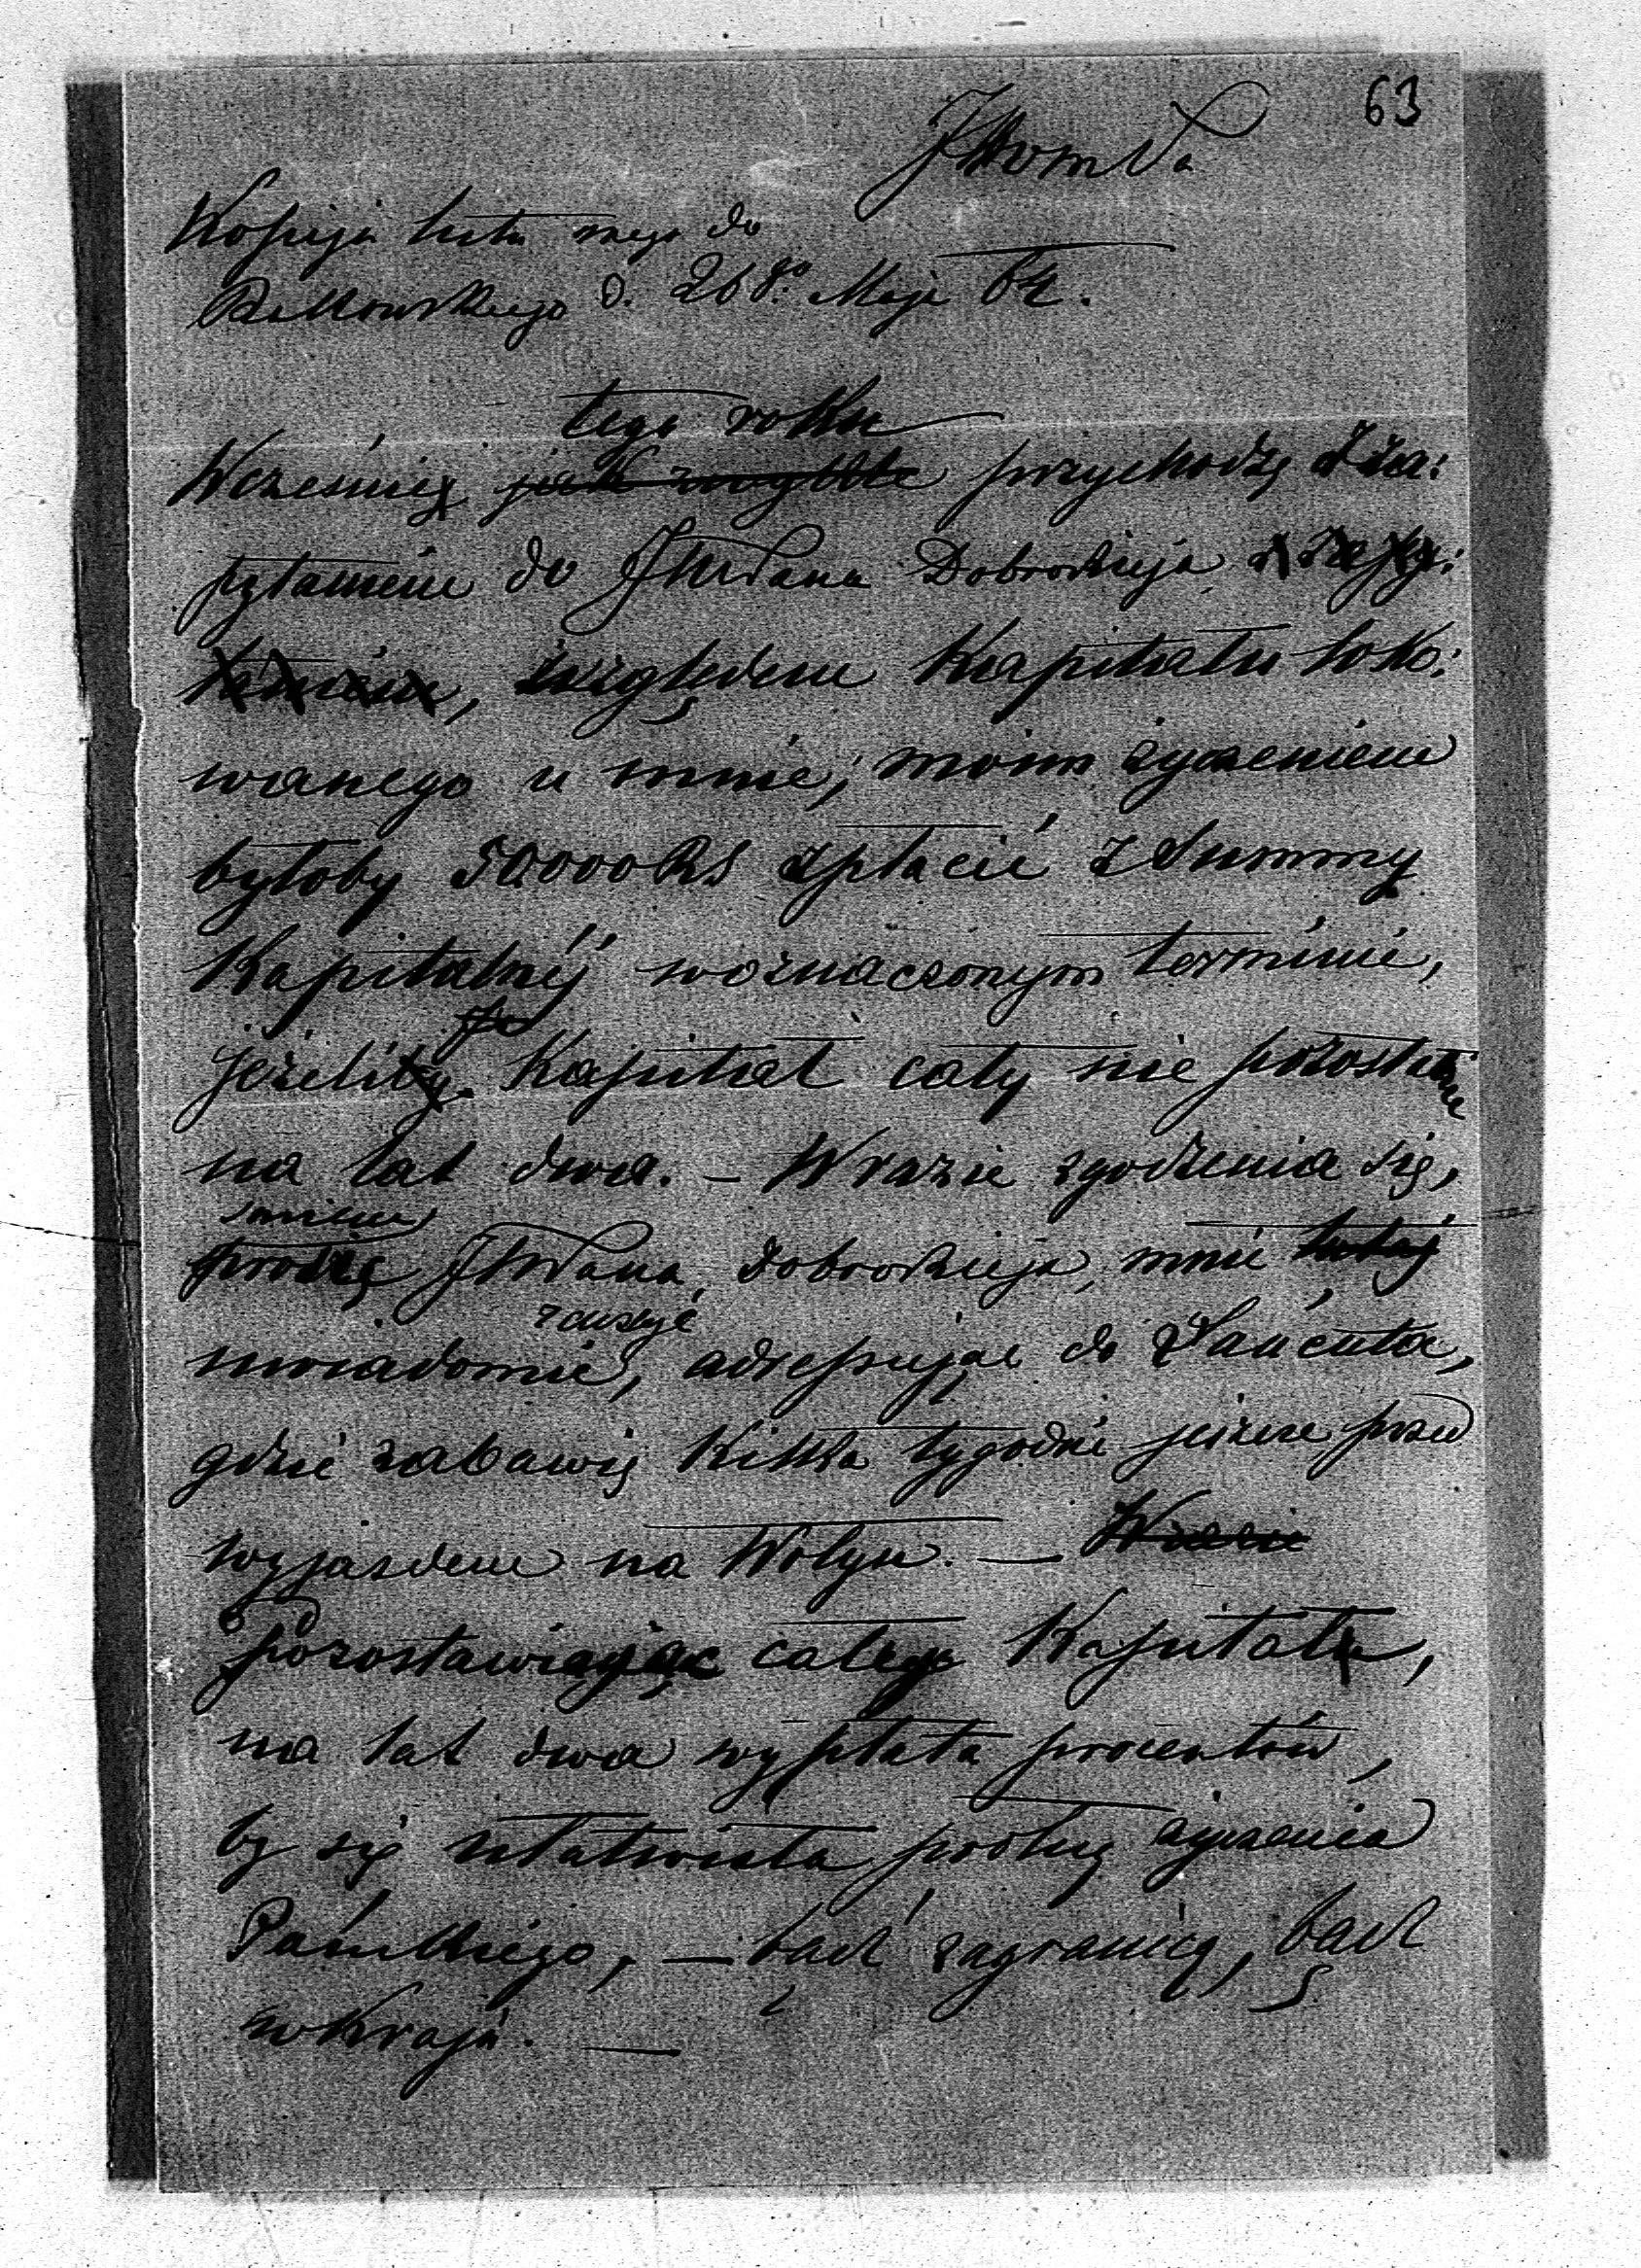 63
Kopija listu mego do
d. 26go Maja 62.
tego roku
Wcześniej jak zwykle przychodzę z za:
pytaniem do JWPana Dobrodzieja z zapy:
taniem, względem Kapitału loko:
wanego u mnie; moim życzeniem
byłoby 50000RS spłacić z Summy
Kapitalnéj woznaczonym terminie,
jeżeliby Kapitał cały nie pozostanie
na lat dwa. – Wrazie zgodzenia się,
śmiem
proszę JWPana Dobrodzieja, mnie tutaj
raczyć
uwiadomić, adressując do Łańcuta,
gdzie zabawię kilka tygodni jeszcze przed
wyjazdem na Wołyń. — Wrazie
pozostawiając całego Kapitału,
na lat dwa wypłata procentów,
by się ułatwiła podług życzenia
Pańskiego, — bądź zagranicą, bądź
wkraju. —